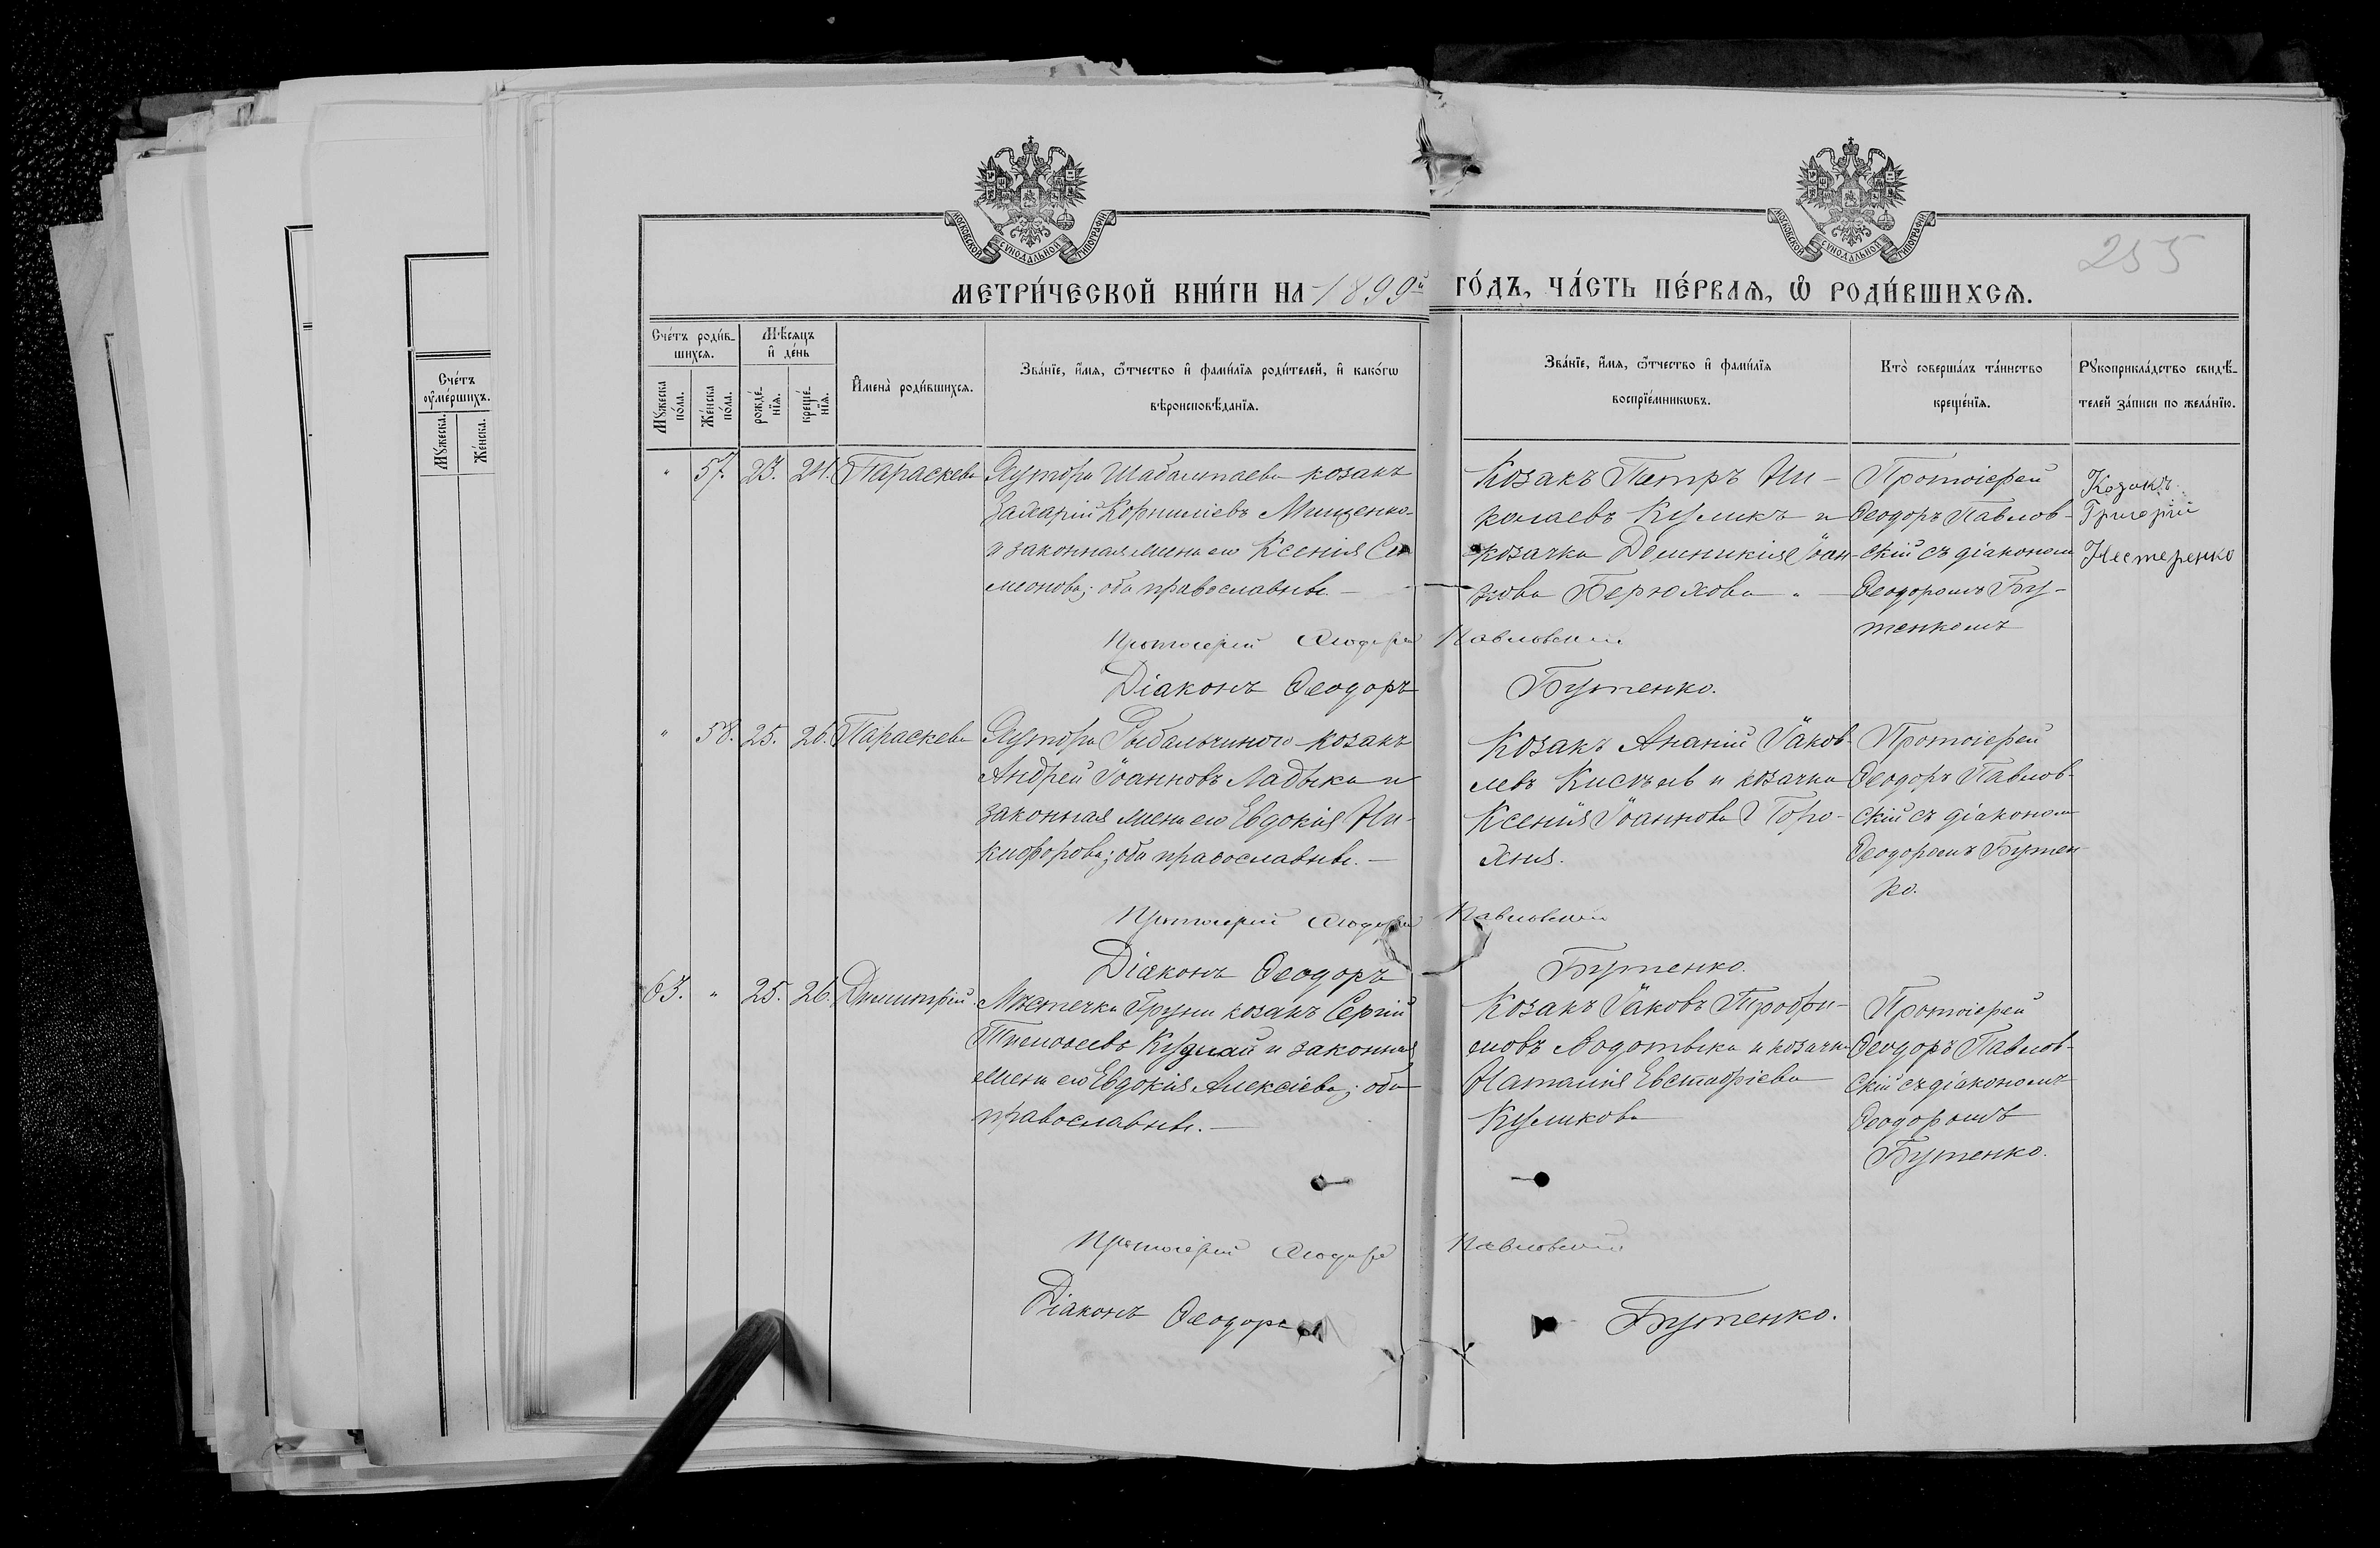 МОСКОВСКОЙ СУНОДАЛЬНОЙ ТИПОГРАФІИ
МОСКОВСКОЙ СУНОДАЛЬНОЙ ТИПОГРАФІИ
255
МЕТРИ́ЧЕСКОЙ КНИ́ГИ НА 1899й ГО́ДЪ, ЧА́СТЬ ПЕ́РВАѦ, Ѽ РОДИ́ВШИХСѦ.
Сче́тъ ᲂу҆ме́ршихъ.
Мꙋжеска.
Же́нска.
Сче́тъ роди́в-
шихсѧ.
Мꙋжеска по́ла.
Же́нска по́ла.
Мѣ́сѧцъ и҆ де́нь
рожде́-нїѧ.
креще́-нїѧ.
И҆мена̀ роди́вшихсѧ.
Зва́нїе, и҆́мѧ, ѻ҆́тчество и҆ фами́лїѧ роди́телей, и҆ како́гѡ
вѣроисповѣ́данїѧ.
Зва́нїе, и҆́мѧ, ѻ҆́тчество и҆ фами́лїѧ
воспрїе́мникѡвъ.
Кто̀ соверша́лъ та́инство
креще́нїѧ.
Рꙋкоприкла́дство свидѣ́-
телей за́писи по жела́нїю.
" 57. 23. 24. Параскева
Хутора Шабалтаева козакъ
Захарій Корниліевъ Мищенко
и законная жена его Ксенія Си
меонова; оба православные. —
Козакъ Петръ Ни-
колаевъ Куликъ и
козачка Домникія Іоан-
нова Берюхова
Протоіерей
Ѳеодоръ Павлов-
скій съ діакономъ
Ѳеодоромъ Бу-
тенкомъ
Козакъ
Григорій
Нестеренко
Протоіерей Ѳеодоръ Павловскій
Діаконъ Ѳеодоръ Бутенко.
" 58. 25. 26. Параскева
Хутора Рыбальчиного козакъ
Андрей Іоанновъ Ладыка и
законная жена его Евдокія Ни-
кифорова; оба православные. —
Козакъ Ананій Іаков-
левъ и козачка
Ксенія Іоаннова
Протоіерей
Ѳеодоръ Павлов-
скій съ діакономъ
Ѳеодоромъ Бутен
ко.
Протоіерей Ѳеодоръ Павловскій
Діаконъ Ѳеодоръ Бутенко.
63. " 25. 26. Димитрій.
Мѣстечка Груни козакъ Сергій
Тимоѳеевъ и законная
жена его Евдокія Алексіева; оба
православные. —
Козакъ Іаковъ Трофи-
мовъ и козачка
Наталія Евстафіева
Куликова
Протоіерей
Ѳеодоръ Павлов-
скій съ діакономъ
Ѳеодоромъ
Бутенко.
Протоіерей Ѳеодоръ Павловскій
Діаконъ Ѳеодоръ Бутенко.